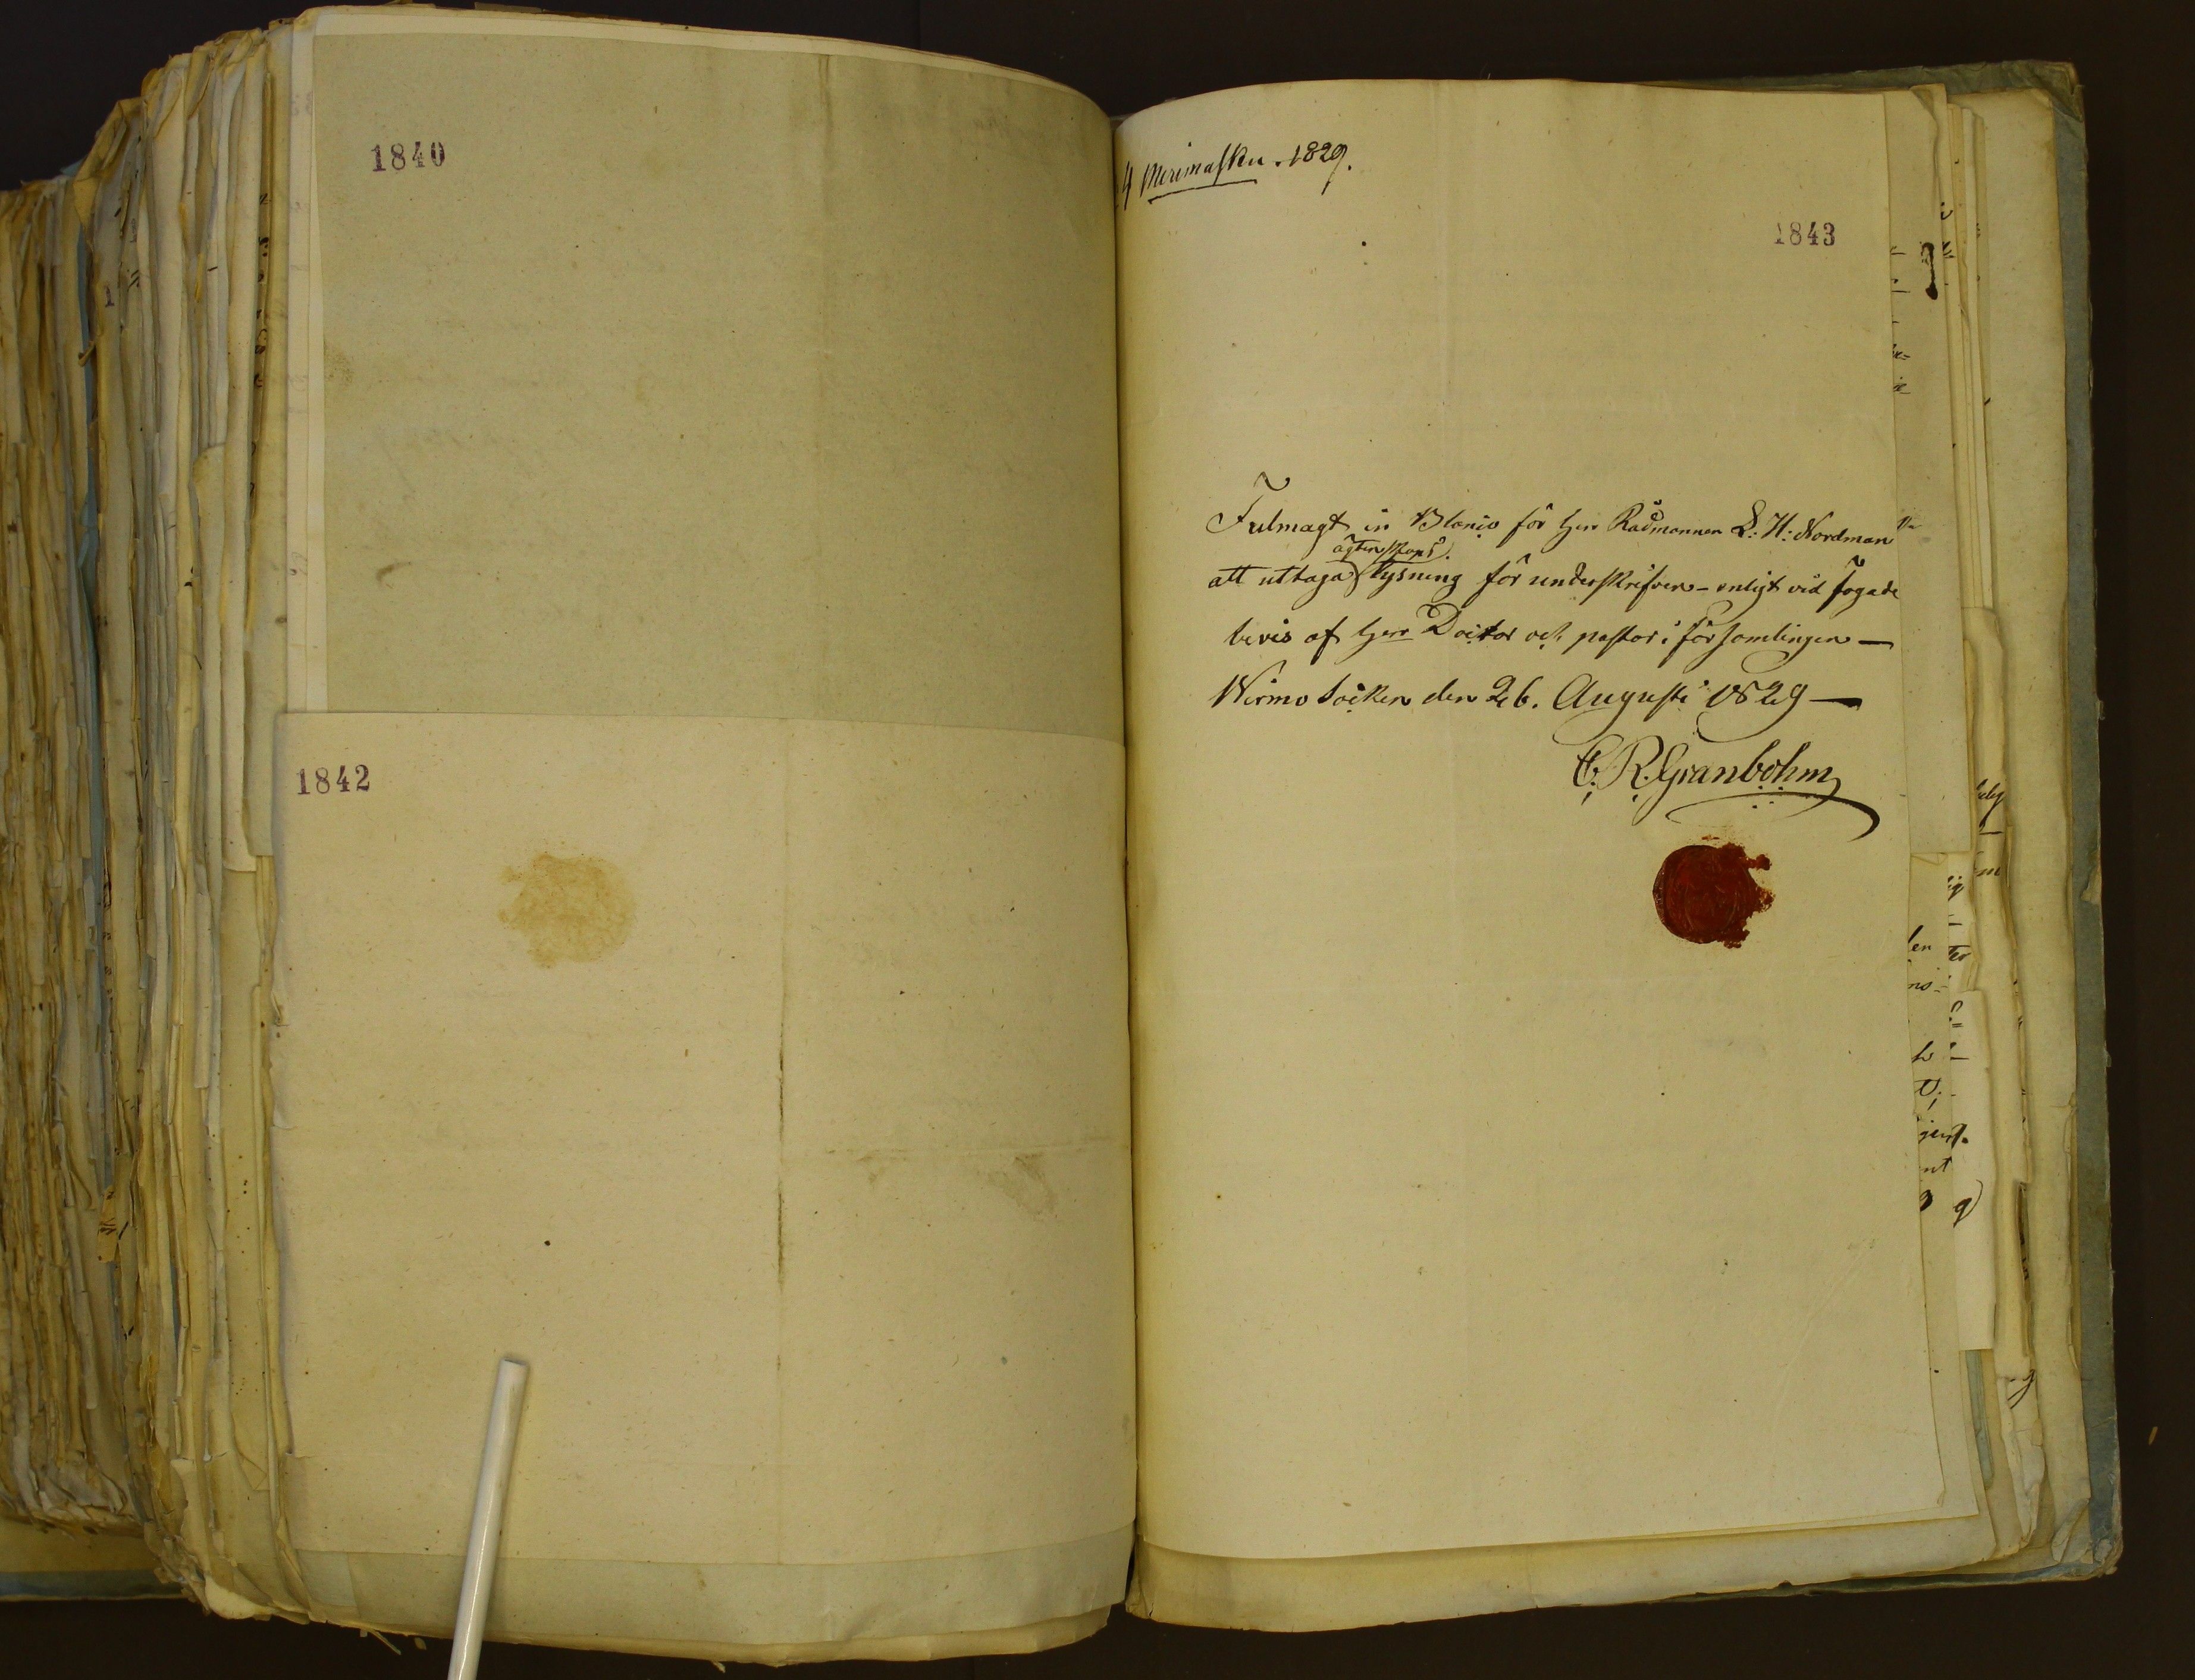 1840
1842
4 Merimasku. 1829.
1843
Fulmagt in Blanco för Herr Rådmannen L: H: Nordman
ägtenskaps
att uttaga lysning för underskrifven - enligt vid fogade
bevis af Herr Docktor och pastor i församlingen —
Wirmo Socken den 26. Augusti 1829 —
C. R. Granbohm